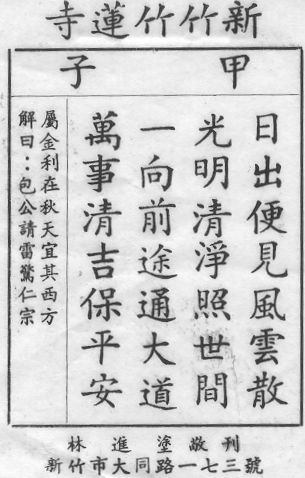 新竹竹蓮寺
甲子
日出便見風雲散
光明清淨照世間
一向前途通大道
萬事清吉保平安
屬金利在秋天宜其西方
解曰：包公請雷驚仁宗
林進塗敬刊
新竹市大同路一七三號